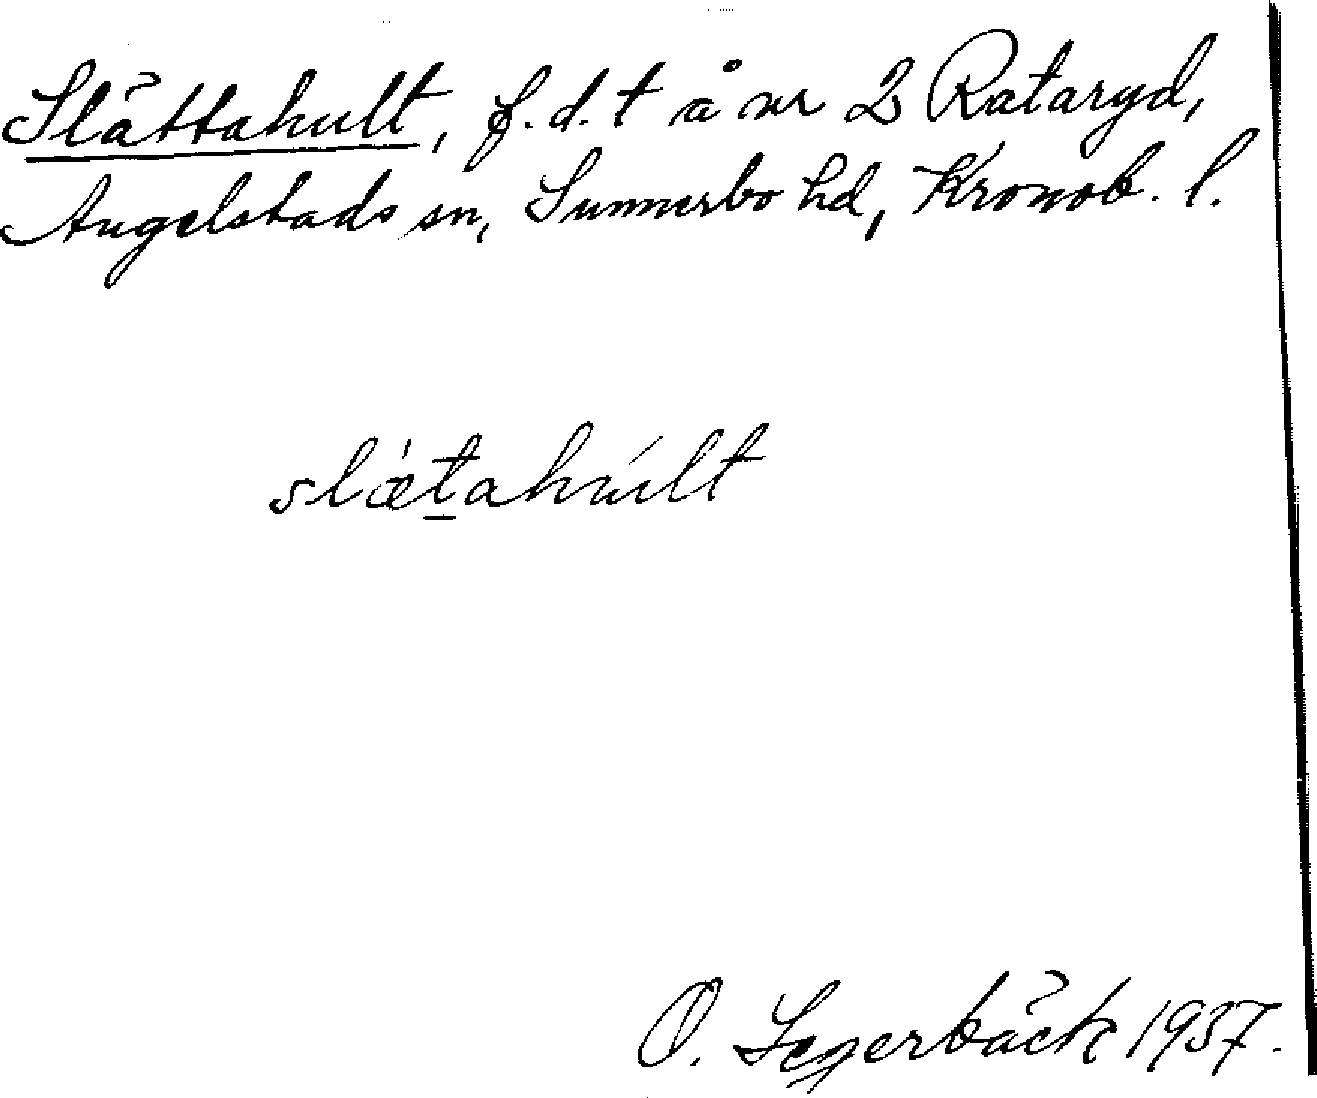 Slättahult, f.d. t å nr 2 Rataryd,
Angelstads sn, Sunnerbo hd, Kronob. l.
slæ̀t̲ahúlt
O. Segerbäck 1937.